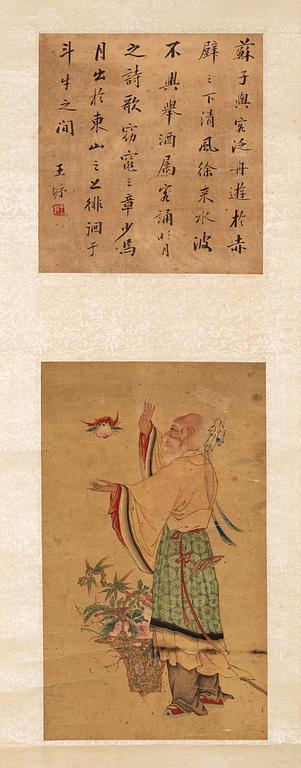 蘇子與客泛舟遊於赤
壁之下清風徐來水波
不興舉酒属客誦明月
之詩歌窈窕之章少焉
月出於東山之上徘徊于
斗牛之间
王